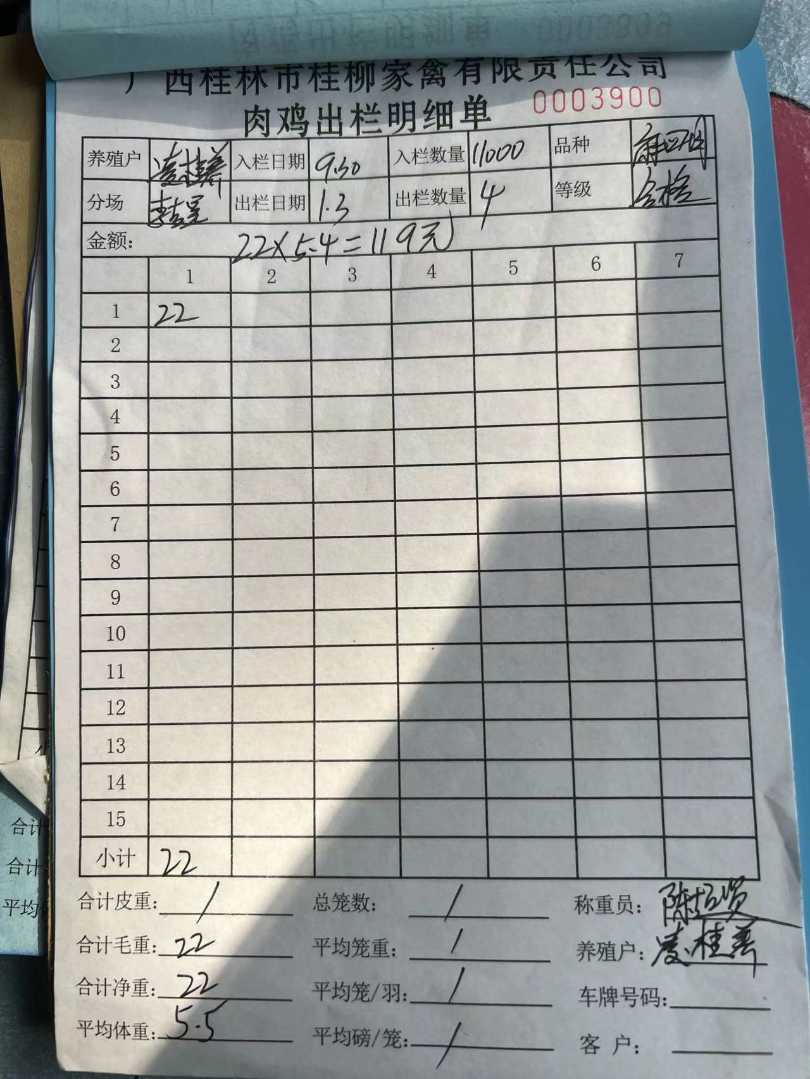 广西桂林市桂柳家禽有限责任公司
肉鸡出栏明细单 0003900
养殖户 凌桂善 入栏日期 9.30 入栏数量 11000 品种
分场 出栏日期 1.3 出栏数量 4 等级 合格
金额: 22×5.4=119元
1 2 3 4 5 6 7
1 22
2
3
4
5
6
7
8
9
10
11
12
13
14
15
小计 22
合计皮重: / 总笼数: / 称重员:
合计毛重: 22 平均笼重: / 养殖户: 凌桂善
合计净重: 22 平均笼/羽: / 车牌号码:
平均体重: 5.5 平均磅/笼: / 客户:
合计
合计
平均